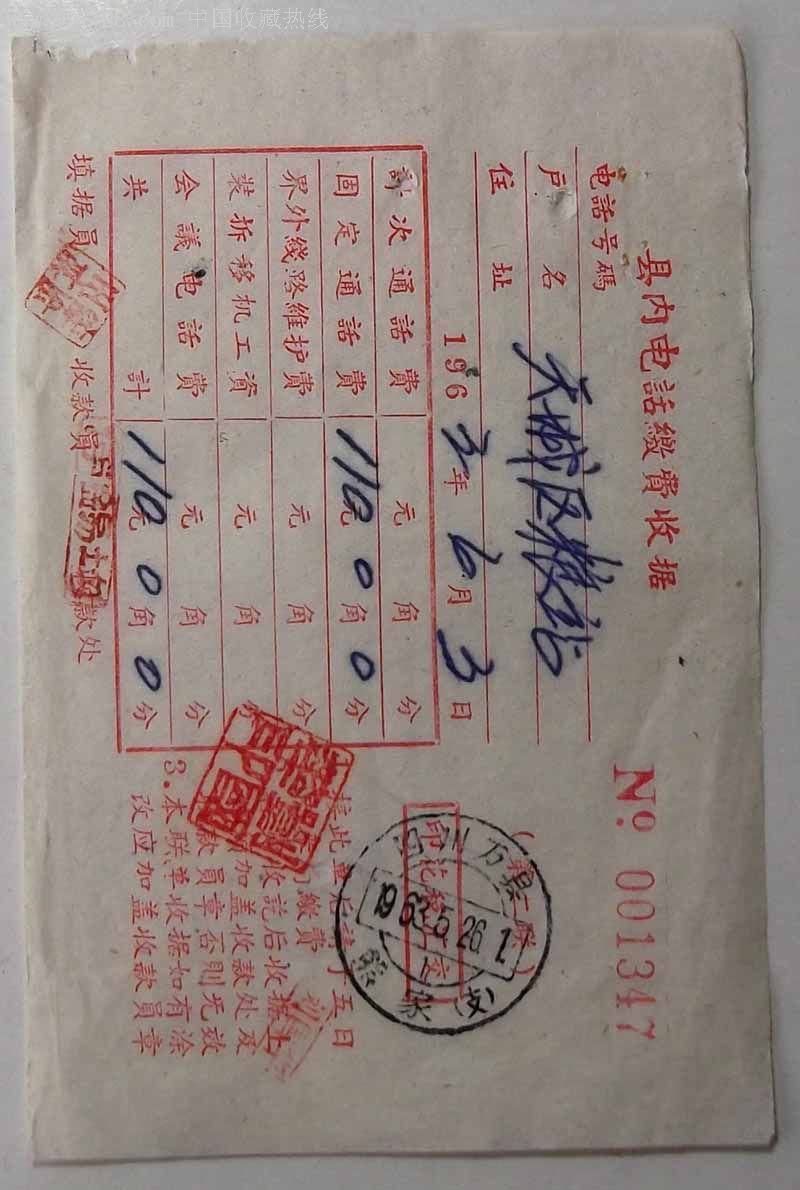 中国收藏热线
县内电話繳費收据
№ 001347
(第二联)
电話号碼
戶名 天城区粮站
住址
1963年6月3日
計次通話費 元 角 分
固定通話費 110元0角0分
界外线路維护費 元 角 分
装拆移机工資 元 角 分
会議电話費 元 角 分
共計 110元0角0分
填据員 收款員 收款处
印花税
四川万县
1963.5.26.1
(支)
五日
繳費
收訖后收据上
加盖收款处及
款員章否則无效
3.本联单收据如有涂
改应加盖收款員章